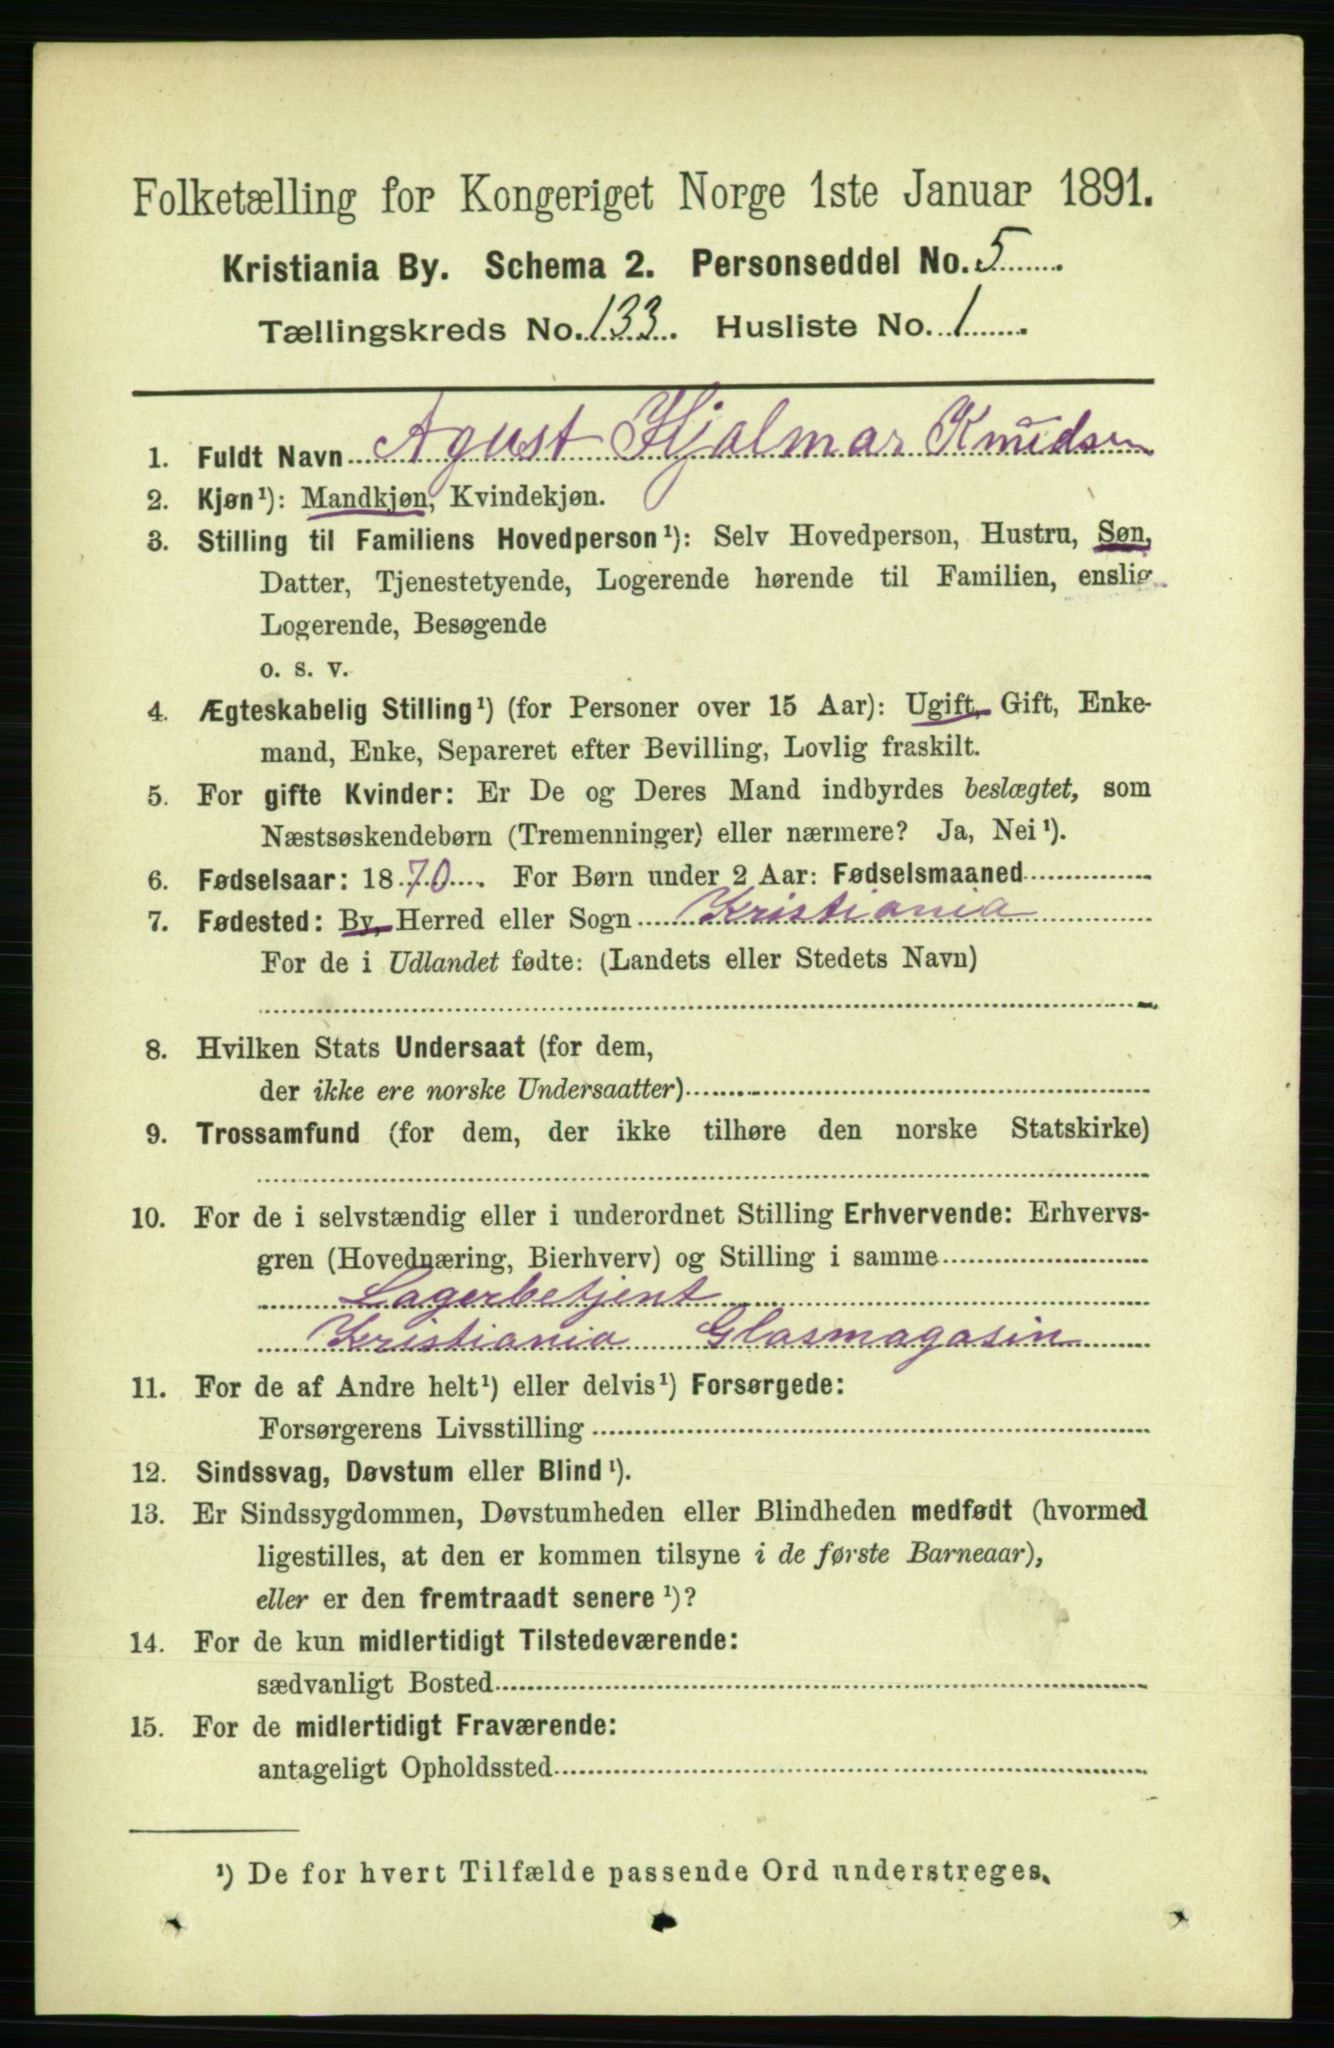 Folketælling for Kongeriget Norge 1ste Januar 1891.
Kristiania By. Schema 2. Personseddel No. 5
Tællingskreds No. 133. Husliste No. 1
1. Fuldt Navn Agust Hjalmar Knudsen
2. Kjøn¹): Mandkjøn, Kvindekjøn.
3. Stilling til Familiens Hovedperson¹): Selv Hovedperson, Hustru, Søn,
Datter, Tjenestetyende, Logerende hørende til Familien, enslig
Logerende, Besøgende
o. s. v.
4. Ægteskabelig Stilling¹) (for Personer over 15 Aar): Ugift, Gift, Enke-
mand, Enke, Separeret efter Bevilling, Lovlig fraskilt.
5. For gifte Kvinder: Er De og Deres Mand indbyrdes beslægtet, som
Næstsøskendebørn (Tremenninger) eller nærmere? Ja, Nei¹).
6. Fødselsaar: 1870. For Børn under 2 Aar: Fødselsmaaned
7. Fødested: By, Herred eller Sogn Kristiania
For de i Udlandet fødte: (Landets eller Stedets Navn)
8. Hvilken Stats Undersaat (for dem,
der ikke ere norske Undersaatter)
9. Trossamfund (for dem, der ikke tilhøre den norske Statskirke)
10. For de i selvstændig eller i underordnet Stilling Erhvervende: Erhvervs-
gren (Hovednæring, Bierhverv) og Stilling i samme
Lagerbetjent
Kristiania Glasmagasin
11. For de af Andre helt¹) eller delvis¹) Forsørgede:
Forsørgerens Livsstilling
12. Sindssvag, Døvstum eller Blind¹).
13. Er Sindssygdommen, Døvstumheden eller Blindheden medfødt (hvormed
ligestilles, at den er kommen tilsyne i de første Barneaar),
eller er den fremtraadt senere¹)?
14. For de kun midlertidigt Tilstedeværende:
sædvanligt Bosted
15. For de midlertidigt Fraværende:
antageligt Opholdssted
¹) De for hvert Tilfælde passende Ord understreges.